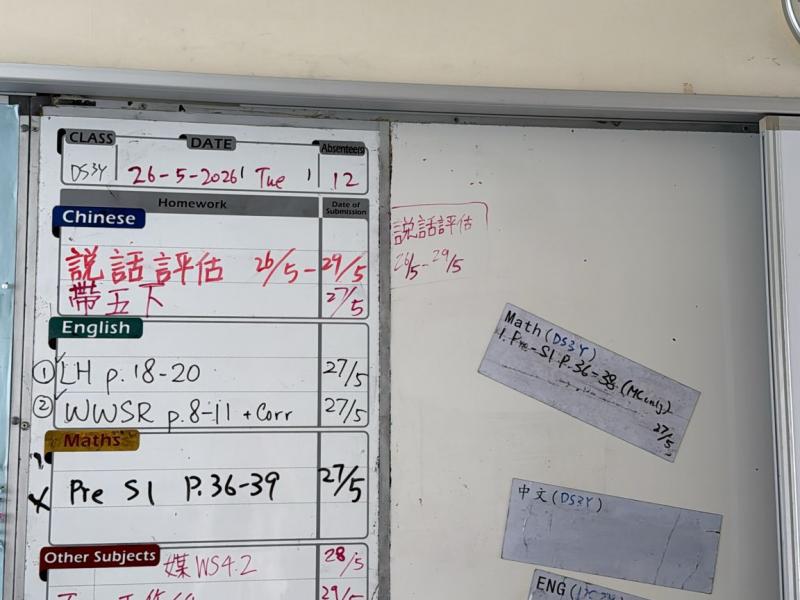 CLASS DATE Absentee(s)
DS3Y 26-5-2026 Tue 12
Homework Date of Submission
Chinese
説話評估 26/5-29/5
帶五下 27/5
English
① LH p.18-20 27/5
② WWSR p.8-11 + Corr 27/5
Maths
Pre S1 P.36-39 27/5
Other Subjects
媒 WS4.2 28/5
29/5
説話評估
26/5-29/5
Math (DS3Y)
1. Pre-S1 P.36-38 (MC only)
27/5
中文 (DS3Y)
ENG